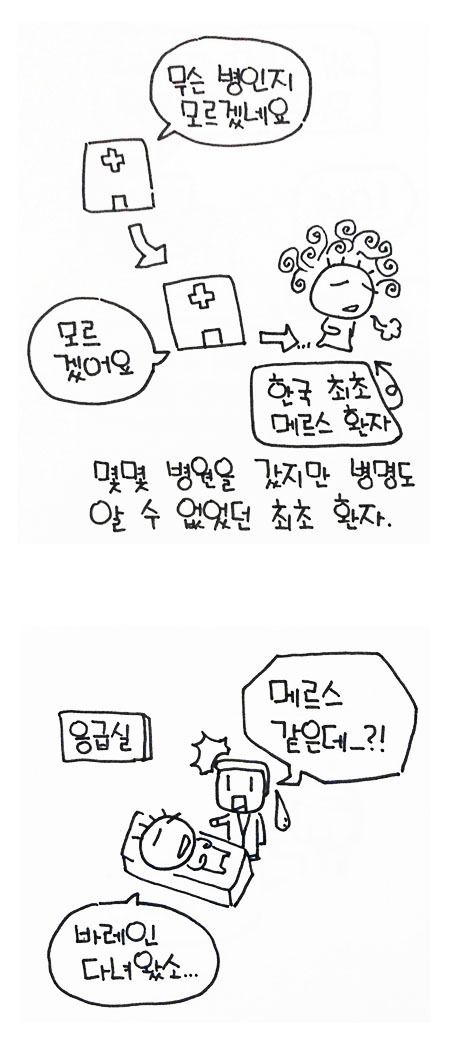 무슨 병인지
모르겠네요
모르
겠어요
한국 최초
메르스 환자
몇몇 병원을 갔지만 병명도
알 수 없었던 최초 환자.
응급실
메르스
같은데...?!
바레인
다녀왔소...